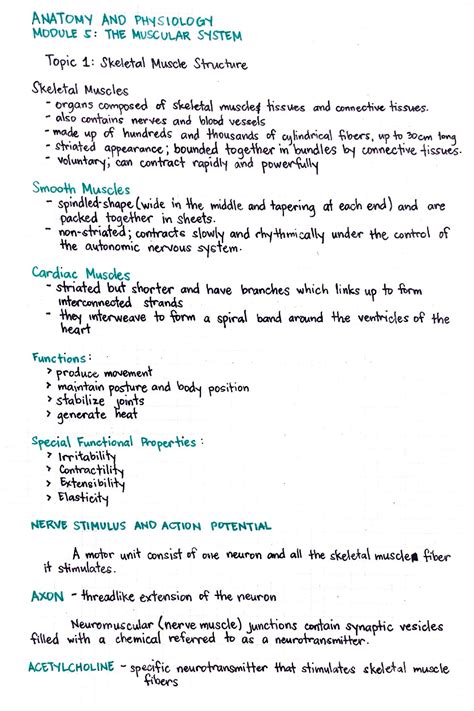 ANATOMY AND PHYSIOLOGY
MODULE 5: THE MUSCULAR SYSTEM
Topic 1: Skeletal Muscle Structure
Skeletal Muscles
- organs composed of skeletal muscles tissues and connective tissues.
- also contains nerves and blood vessels
- made up of hundreds and thousands of cylindrical fibers, up to 30cm long
- striated appearance; bounded together in bundles by connective tissues.
- voluntary; can contract rapidly and powerfully
Smooth Muscles
- spindled-shape (wide in the middle and tapering at each end) and are
packed together in sheets.
- non-striated; contracts slowly and rhythmically under the control of
the autonomic nervous system.
Cardiac Muscles
- striated but shorter and have branches which links up to form
interconnected strands
- they interweave to form a spiral band around the ventricles of the
heart
Functions:
> produce movement
> maintain posture and body position
> stabilize joints
> generate heat
Special Functional Properties:
> Irritability
> Contractility
> Extensibility
> Elasticity
NERVE STIMULUS AND ACTION POTENTIAL
A motor unit consist of one neuron and all the skeletal muscle fiber
it stimulates.
AXON - threadlike extension of the neuron
Neuromuscular (nerve muscle) junctions contain synaptic vesicles
filled with a chemical referred to as a neurotransmitter.
ACETYLCHOLINE - specific neurotransmitter that stimulates skeletal muscle
fibers